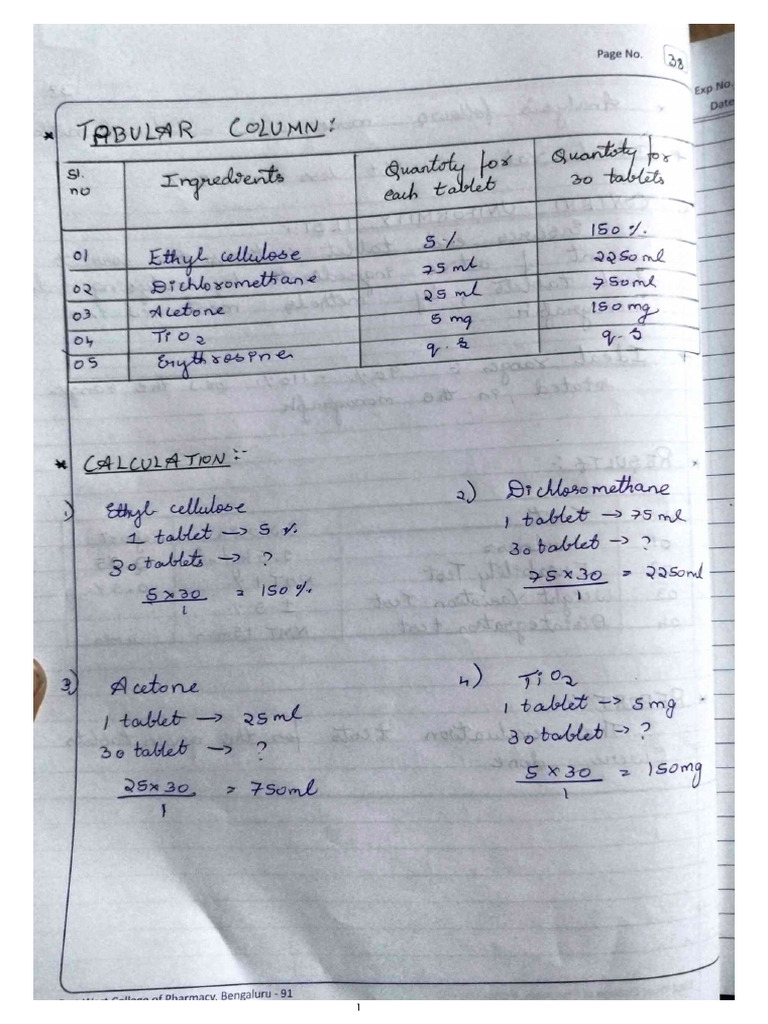 Page No. 38
Exp No.
Date
* TABULAR COLUMN:
Sl. no | Ingredients | Quantoty for each tablet | Quantoty for 30 tablets
01 | Ethyl cellulose | 5 % | 150 %
02 | Dichloromethane | 75 ml | 2250 ml
03 | Acetone | 25 ml | 750 ml
04 | TiO2 | 5 mg | 150 mg
05 | Erythrosine | q.s | q.s
* CALCULATION:-
1) Ethyl cellulose
1 tablet → 5 %
30 tablets → ?
5 × 30 / 1 = 150 %
2) Dichloromethane
1 tablet → 75 ml
30 tablet → ?
75 × 30 / 1 = 2250 ml
3) Acetone
1 tablet → 25 ml
30 tablet → ?
25 × 30 / 1 = 750 ml
4) TiO2
1 tablet → 5 mg
30 tablet → ?
5 × 30 / 1 = 150 mg
West College of Pharmacy, Bengaluru - 91
1